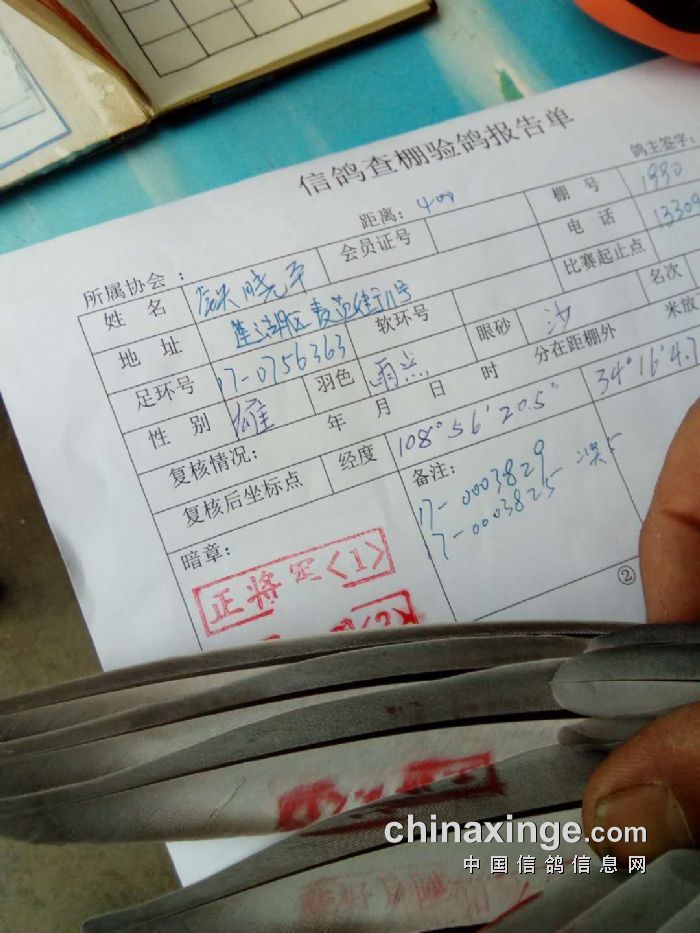 信鸽查棚验鸽报告单
鸽主签字:
所属协会: 距离: 400
姓 名 晓平 会员证号 棚 号 1990
地 址 莲湖区麦苋街11号 电 话 13309
足环号 17-0756363 软环号 比赛起止点
性 别 雄 羽色 雨点 眼砂 沙 名次
年 月 日 时 分在距棚外 米放
复核情况:
复核后坐标点 经度 108°56'20.5" 34°16'4.7
暗章: 备注:
17-0003829
17-0003825
正将军<1>
<2>
②
chinaxinge.com
中国信鸽信息网